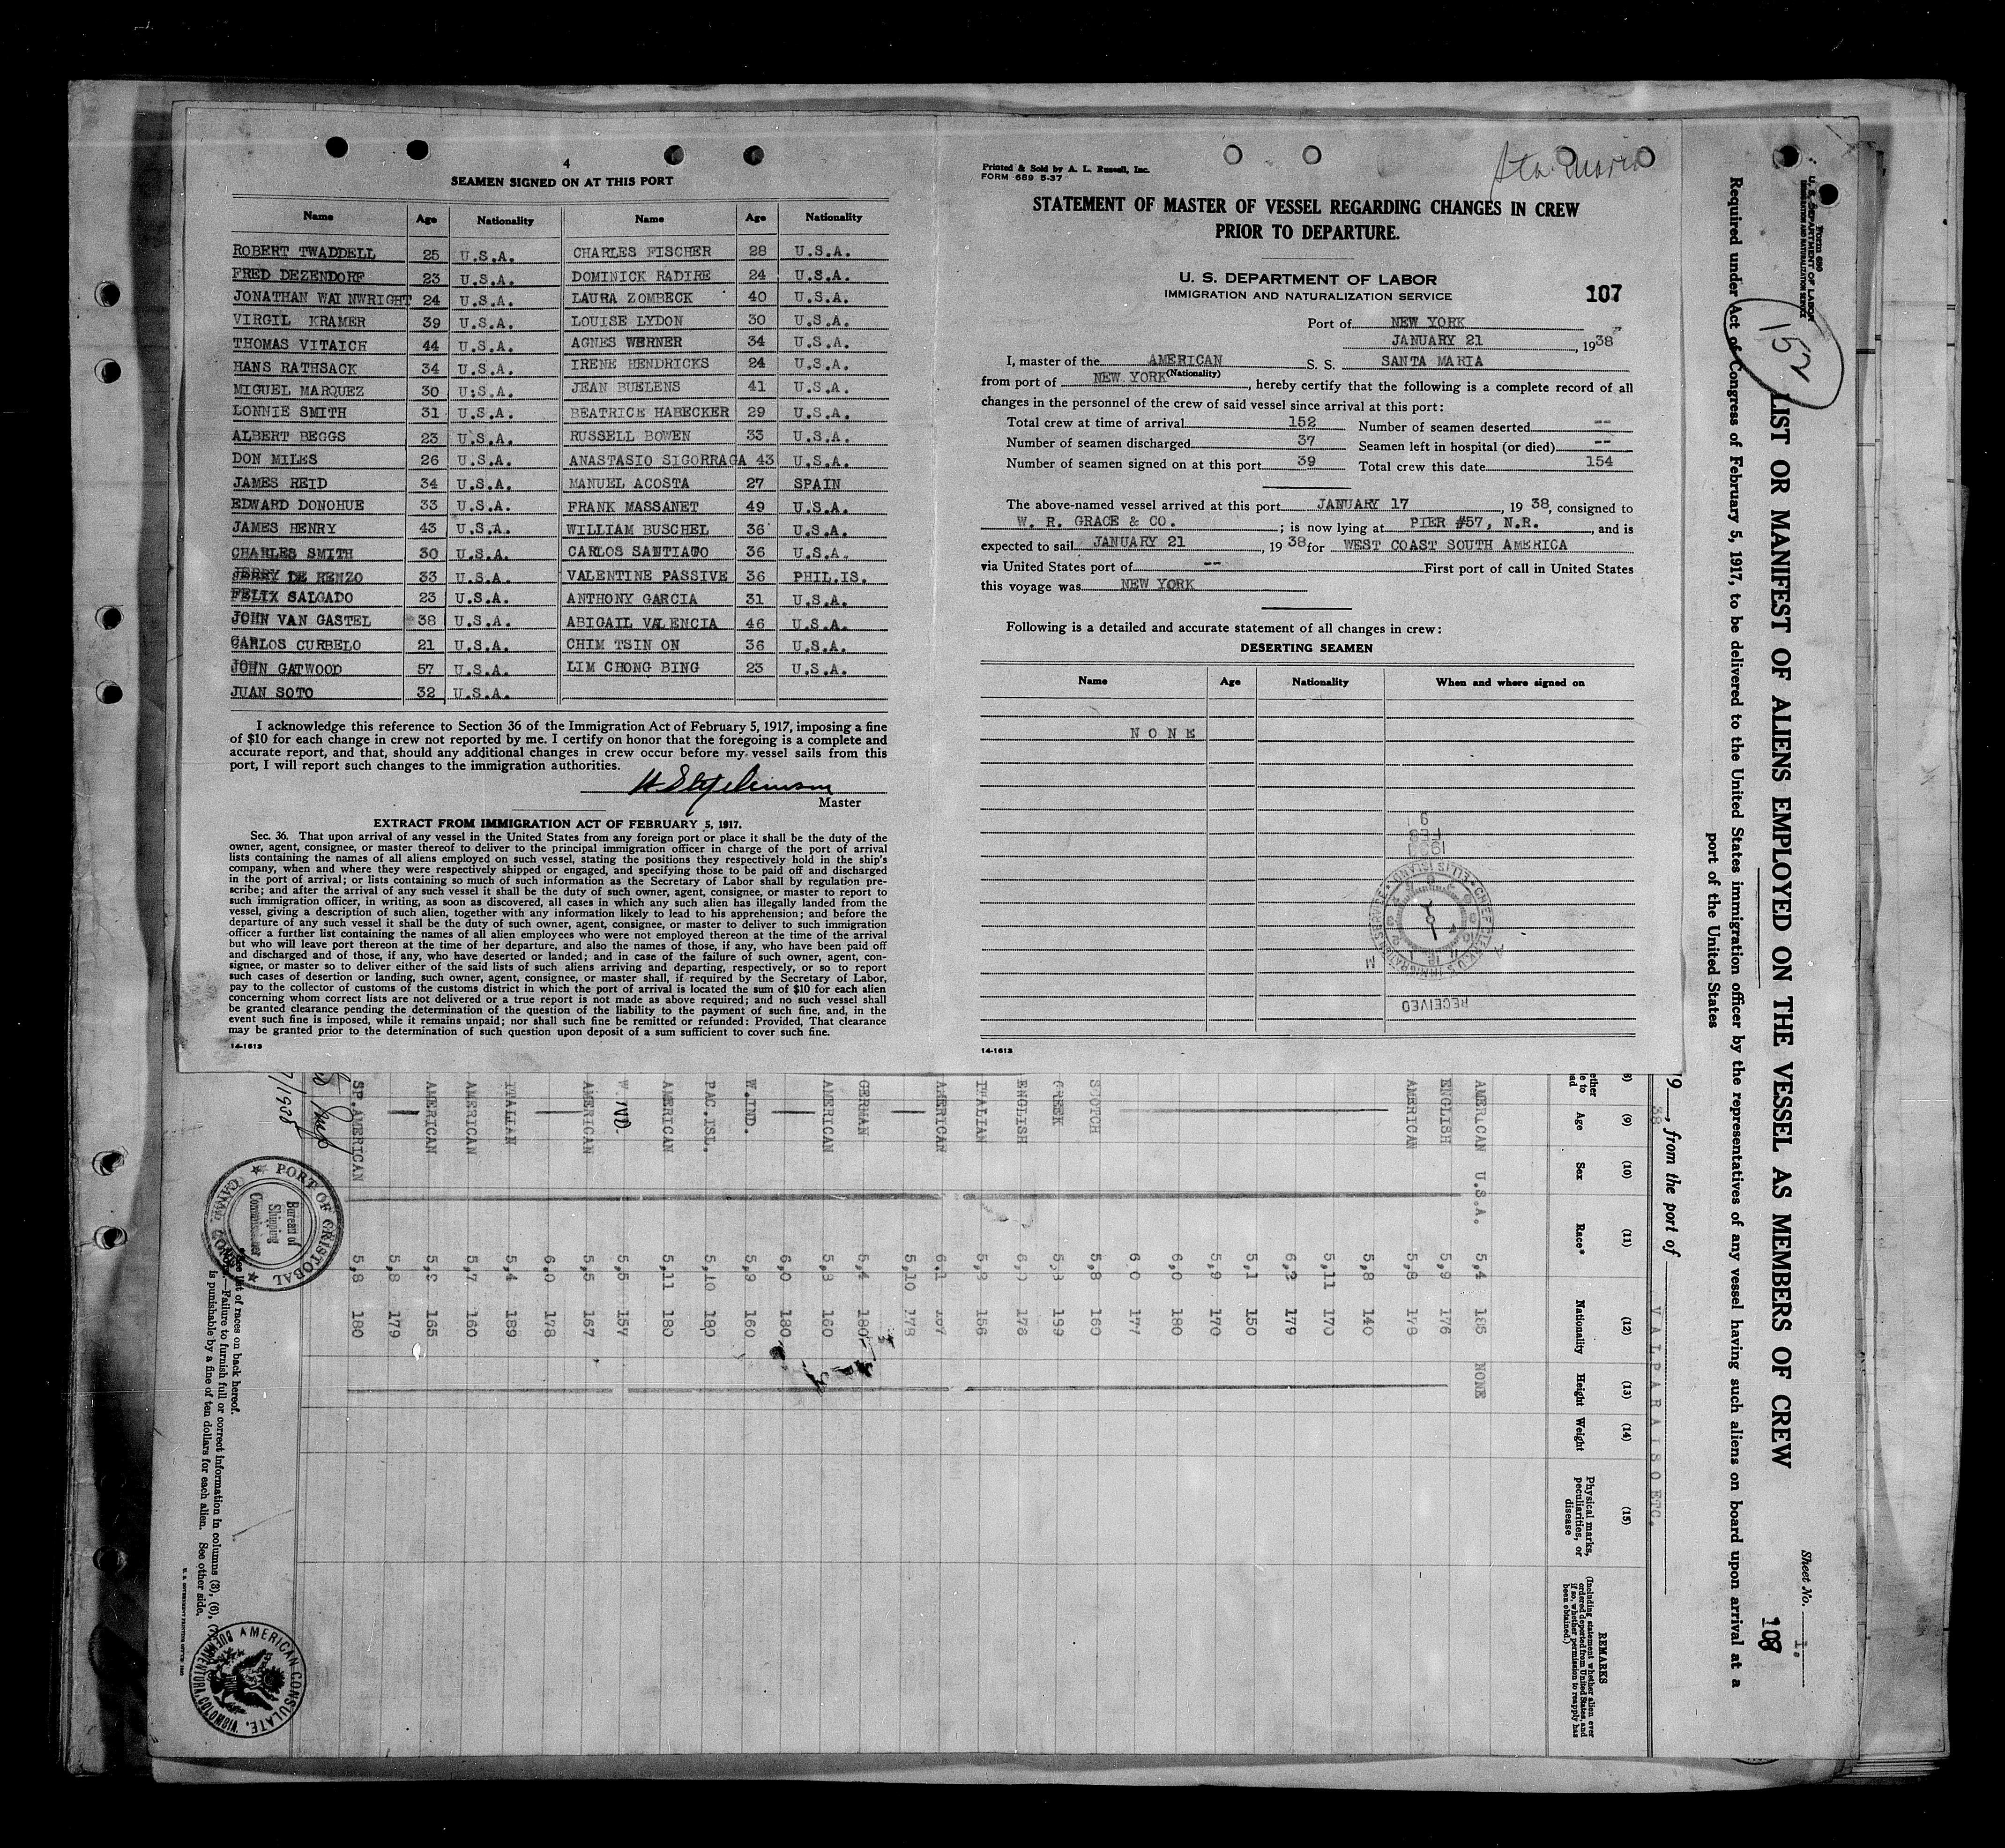 4
SEAMEN SIGNED ON AT THIS PORT
Name Age Nationality Name Age Nationality
ROBERT TWADDELL 25 U.S.A. CHARLES FISCHER 28 U.S.A.
FRED DEZENDORF 23 U.S.A. DOMINICK RADIRE 24 U.S.A.
JONATHAN WAINWRIGHT 24 U.S.A. LAURA ZOMBECK 40 U.S.A.
VIRGIL KRAMER 39 U.S.A. LOUISE LYDON 30 U.S.A.
THOMAS VITAICH 44 U.S.A. AGNES WERNER 34 U.S.A.
HANS RATHSACK 34 U.S.A. IRENE HENDRICKS 24 U.S.A.
MIGUEL MARQUEZ 30 U.S.A. JEAN BUELENS 41 U.S.A.
LONNIE SMITH 31 U.S.A. BEATRICE HABECKER 29 U.S.A.
ALBERT BEGGS 23 U.S.A. RUSSELL BOWEN 33 U.S.A.
DON MILES 26 U.S.A. ANASTASIO SIGORRAGA 43 U.S.A.
JAMES REID 34 U.S.A. MANUEL ACOSTA 27 SPAIN
EDWARD DONOHUE 33 U.S.A. FRANK MASSANET 49 U.S.A.
JAMES HENRY 43 U.S.A. WILLIAM BUSCHEL 36 U.S.A.
CHARLES SMITH 30 U.S.A. CARLOS SANTIAGO 36 U.S.A.
JERRY DE RENZO 33 U.S.A. VALENTINE PASSIVE 36 PHIL.IS.
FELIX SALGADO 23 U.S.A. ANTHONY GARCIA 31 U.S.A.
JOHN VAN GASTEL 38 U.S.A. ABIGAIL VALENCIA 46 U.S.A.
CARLOS CURBELO 21 U.S.A. CHIM TSIN ON 36 U.S.A.
JOHN GATWOOD 57 U.S.A. LIM CHONG BING 23 U.S.A.
JUAN SOTO 32 U.S.A.
I acknowledge this reference to Section 36 of the Immigration Act of February 5, 1917, imposing a fine
of $10 for each change in crew not reported by me. I certify on honor that the foregoing is a complete and
accurate report, and that, should any additional changes in crew occur before my vessel sails from this
port, I will report such changes to the immigration authorities.
Master
EXTRACT FROM IMMIGRATION ACT OF FEBRUARY 5, 1917.
Sec. 36. That upon arrival of any vessel in the United States from any foreign port or place it shall be the duty of the
owner, agent, consignee, or master thereof to deliver to the principal immigration officer in charge of the port of arrival
lists containing the names of all aliens employed on such vessel, stating the positions they respectively hold in the ship's
company, when and where they were respectively shipped or engaged, and specifying those to be paid off and discharged
in the port of arrival; or lists containing so much of such information as the Secretary of Labor shall by regulation pre-
scribe; and after the arrival of any such vessel it shall be the duty of such owner, agent, consignee, or master to report to
such immigration officer, in writing, as soon as discovered, all cases in which any such alien has illegally landed from the
vessel, giving a description of such alien, together with any information likely to lead to his apprehension; and before the
departure of any such vessel it shall be the duty of such owner, agent, consignee, or master to deliver to such immigration
officer a further list containing the names of all alien employees who were not employed thereon at the time of the arrival
but who will leave port thereon at the time of her departure, and also the names of those, if any, who have been paid off
and discharged and of those, if any, who have deserted or landed; and in case of the failure of such owner, agent, con-
signee, or master so to deliver either of the said lists of such aliens arriving and departing, respectively, or so to report
such cases of desertion or landing, such owner, agent, consignee, or master shall, if required by the Secretary of Labor,
pay to the collector of customs of the customs district in which the port of arrival is located the sum of $10 for each alien
concerning whom correct lists are not delivered or a true report is not made as above required; and no such vessel shall
be granted clearance pending the determination of the question of the liability to the payment of such fine, and, in the
event such fine is imposed, while it remains unpaid; nor shall such fine be remitted or refunded: Provided, That clearance
may be granted prior to the determination of such question upon deposit of a sum sufficient to cover such fine.
14-1613
Printed & Sold by A. L. Russell, Inc.
FORM 689 5-37
Sta Maria
STATEMENT OF MASTER OF VESSEL REGARDING CHANGES IN CREW
PRIOR TO DEPARTURE.
U. S. DEPARTMENT OF LABOR
IMMIGRATION AND NATURALIZATION SERVICE
107
Port of NEW YORK
JANUARY 21, 1938
I, master of the AMERICAN S. S. SANTA MARIA
(Nationality)
from port of NEW YORK, hereby certify that the following is a complete record of all
changes in the personnel of the crew of said vessel since arrival at this port:
Total crew at time of arrival 152 Number of seamen deserted --
Number of seamen discharged 37 Seamen left in hospital (or died) --
Number of seamen signed on at this port 39 Total crew this date 154
The above-named vessel arrived at this port JANUARY 17, 1938, consigned to
W. R. GRACE & CO.; is now lying at PIER #57, N.R., and is
expected to sail JANUARY 21, 1938 for WEST COAST SOUTH AMERICA
via United States port of -- First port of call in United States
this voyage was NEW YORK
Following is a detailed and accurate statement of all changes in crew:
DESERTING SEAMEN
Name Age Nationality When and where signed on
NONE
RECEIVED
14-1613
Form 680
U. S. DEPARTMENT OF LABOR
IMMIGRATION AND NATURALIZATION SERVICE
152
LIST OR MANIFEST OF ALIENS EMPLOYED ON THE VESSEL AS MEMBERS OF CREW
Sheet No. 1.
108
Required under Act of Congress of February 5, 1917, to be delivered to the United States immigration officer by the representatives of any vessel having such aliens on board upon arrival at a
port of the United States
38, from the port of VALPARAISO ETC.
(9) (10) (11) (12) (13) (14) (15)
Age Sex Race* Nationality Height Weight Physical marks, peculiarities, or disease
REMARKS
(Including statement whether alien ever
ordered deported from United States, and
if so, whether permission to reapply has
been obtained.)
AMERICAN U.S.A. 5,4 185 NONE
ENGLISH 5,9 176
AMERICAN 5,8 178
5,8 140
5,11 170
6,2 179
5,1 150
5,9 170
6,0 180
6 0 177
SCOTCH 5,8 160
GREEK 5,8 199
ENGLISH 178
ITALIAN 156
AMERICAN 6,1
5,10 178
GERMAN 5,4 180
AMERICAN 5,8 160
6,0 180
W.IND. 5,9 160
PAC.ISL. 5,10 180
AMERICAN 5,11 180
W. IND. 5,5 157
AMERICAN 5,5 167
6,0 178
ITALIAN 5,4 189
AMERICAN 5,7 160
AMERICAN 165
5,8 179
SP.AMERICAN 5,8 180
PORT OF CRISTOBAL
Bureau of
Shipping
Commissioner
CANAL ZONE
list of races on back hereof.
—Failure to furnish full or correct information in columns (3), (6),
is punishable by a fine of ten dollars for each alien. See other side.
AMERICAN CONSULATE,
BUENAVENTURA, COLOMBIA